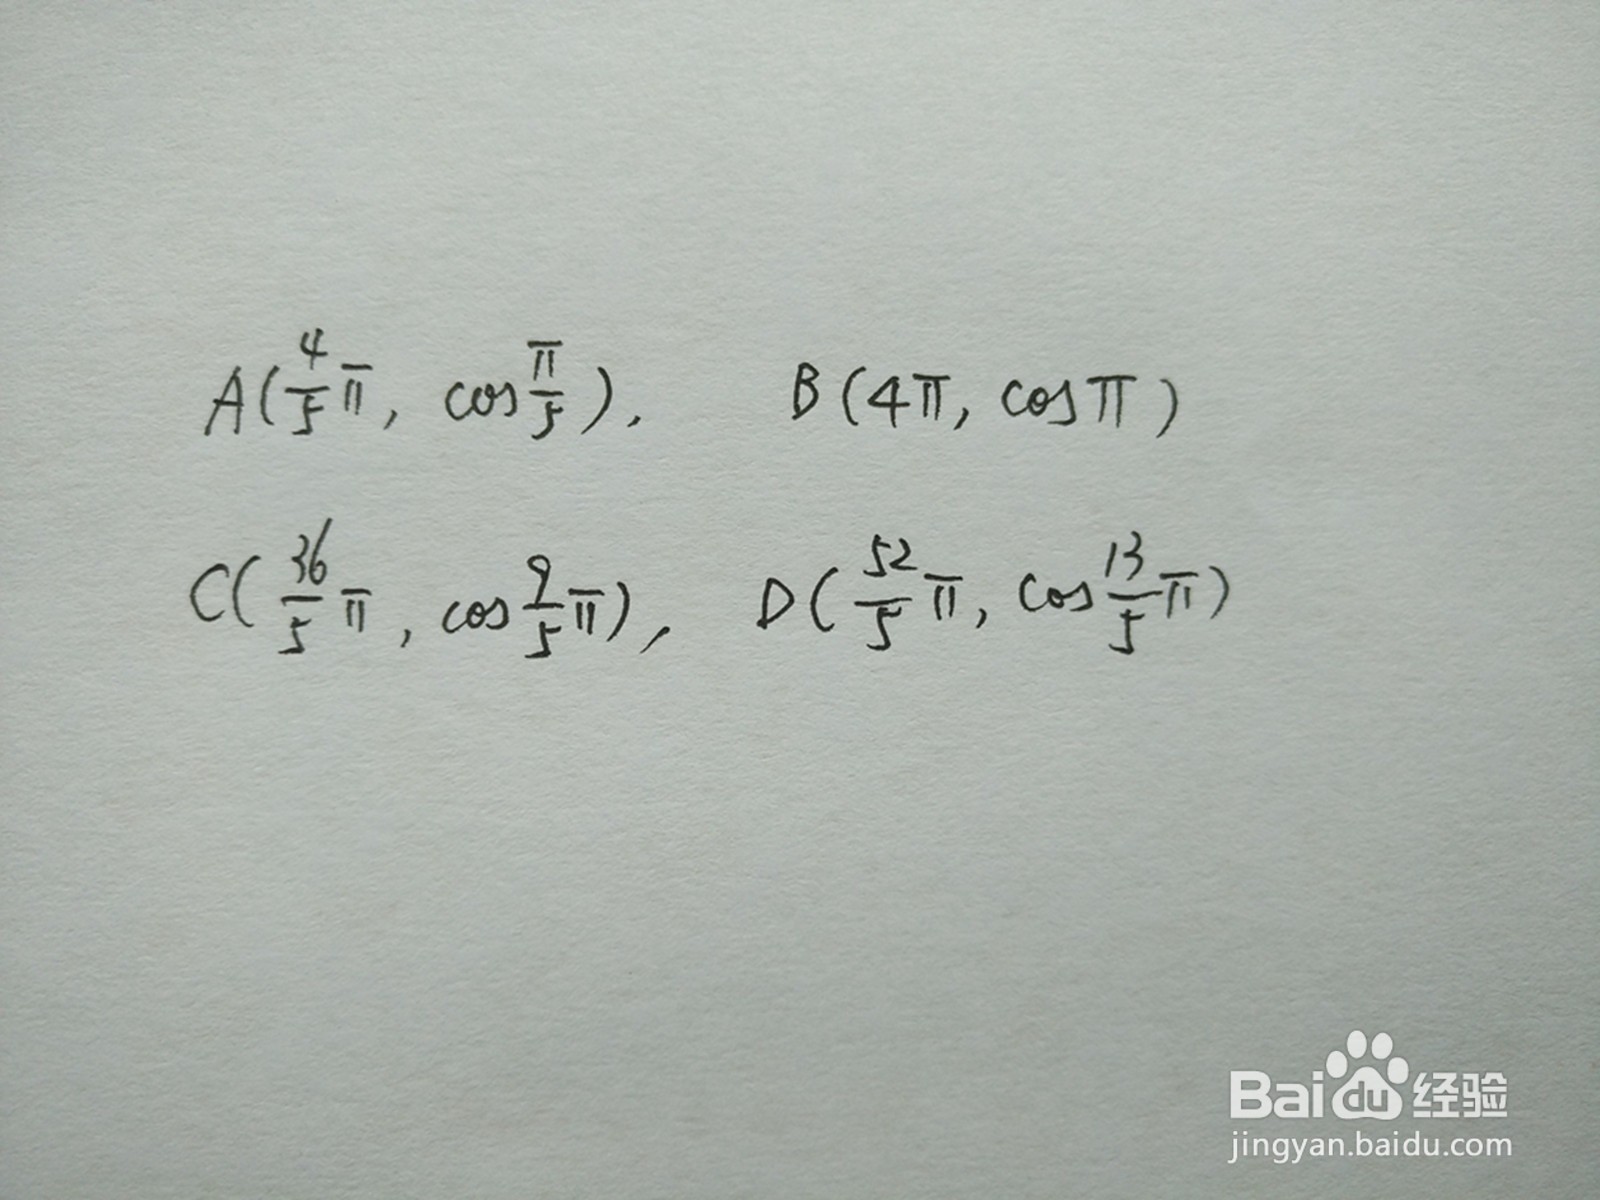 A(4/5 π, cos π/5), B(4π, cosπ)
C(36/5 π, cos 9/5 π), D(52/5 π, cos 13/5 π)
Baidu经验
jingyan.baidu.com